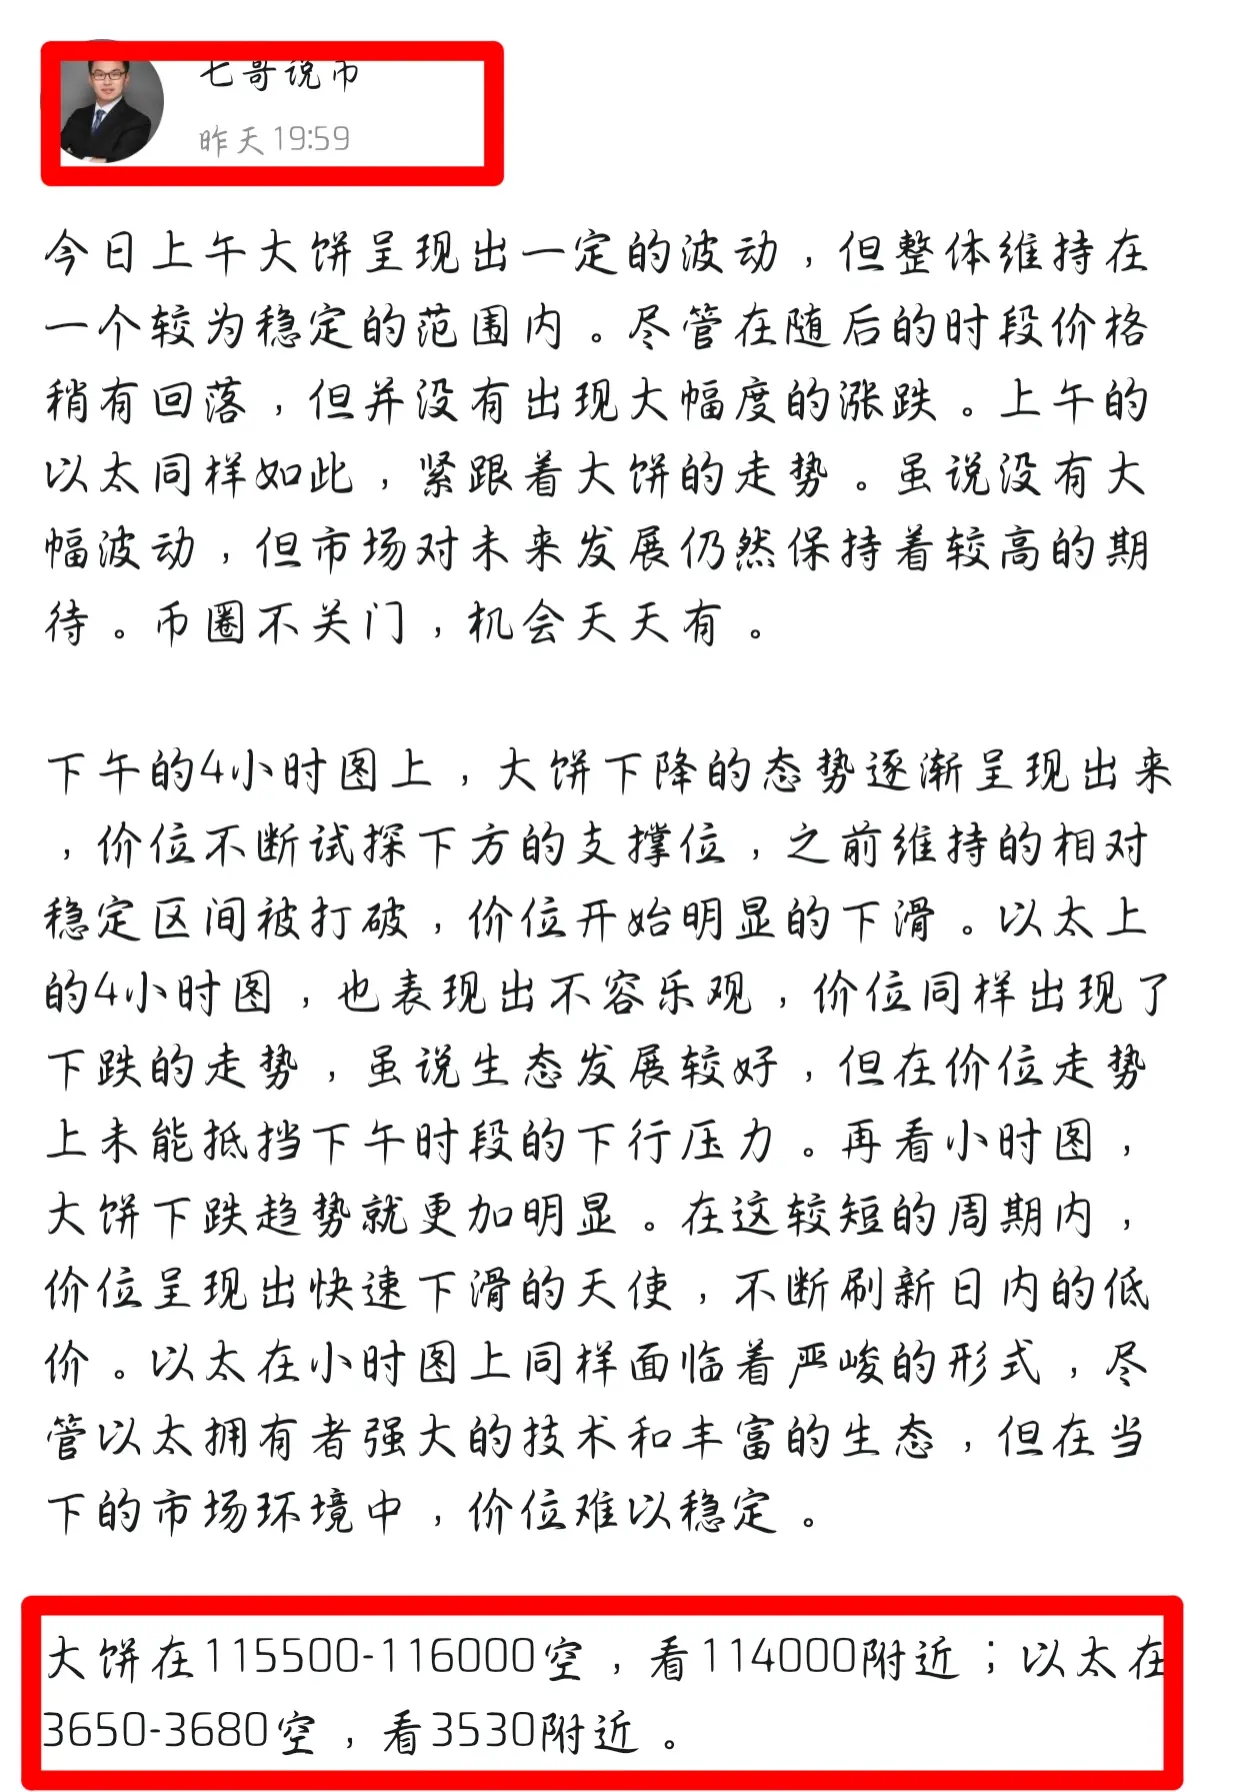 七哥说币
昨天19:59
今日上午大饼呈现出一定的波动，但整体维持在
一个较为稳定的范围内。尽管在随后的时段价格
稍有回落，但并没有出现大幅度的涨跌。上午的
以太同样如此，紧跟着大饼的走势。虽说没有大
幅波动，但市场对未来发展仍然保持着较高的期
待。币圈不关门，机会天天有。
下午的4小时图上，大饼下降的态势逐渐呈现出来
，价位不断试探下方的支撑位，之前维持的相对
稳定区间被打破，价位开始明显的下滑。以太上
的4小时图，也表现出不容乐观，价位同样出现了
下跌的走势，虽说生态发展较好，但在价位走势
上未能抵挡下午时段的下行压力。再看小时图，
大饼下跌趋势就更加明显。在这较短的周期内，
价位呈现出快速下滑的天使，不断刷新日内的低
价。以太在小时图上同样面临着严峻的形式，尽
管以太拥有者强大的技术和丰富的生态，但在当
下的市场环境中，价位难以稳定。
大饼在115500-116000空，看114000附近；以太在
3650-3680空，看3530附近。